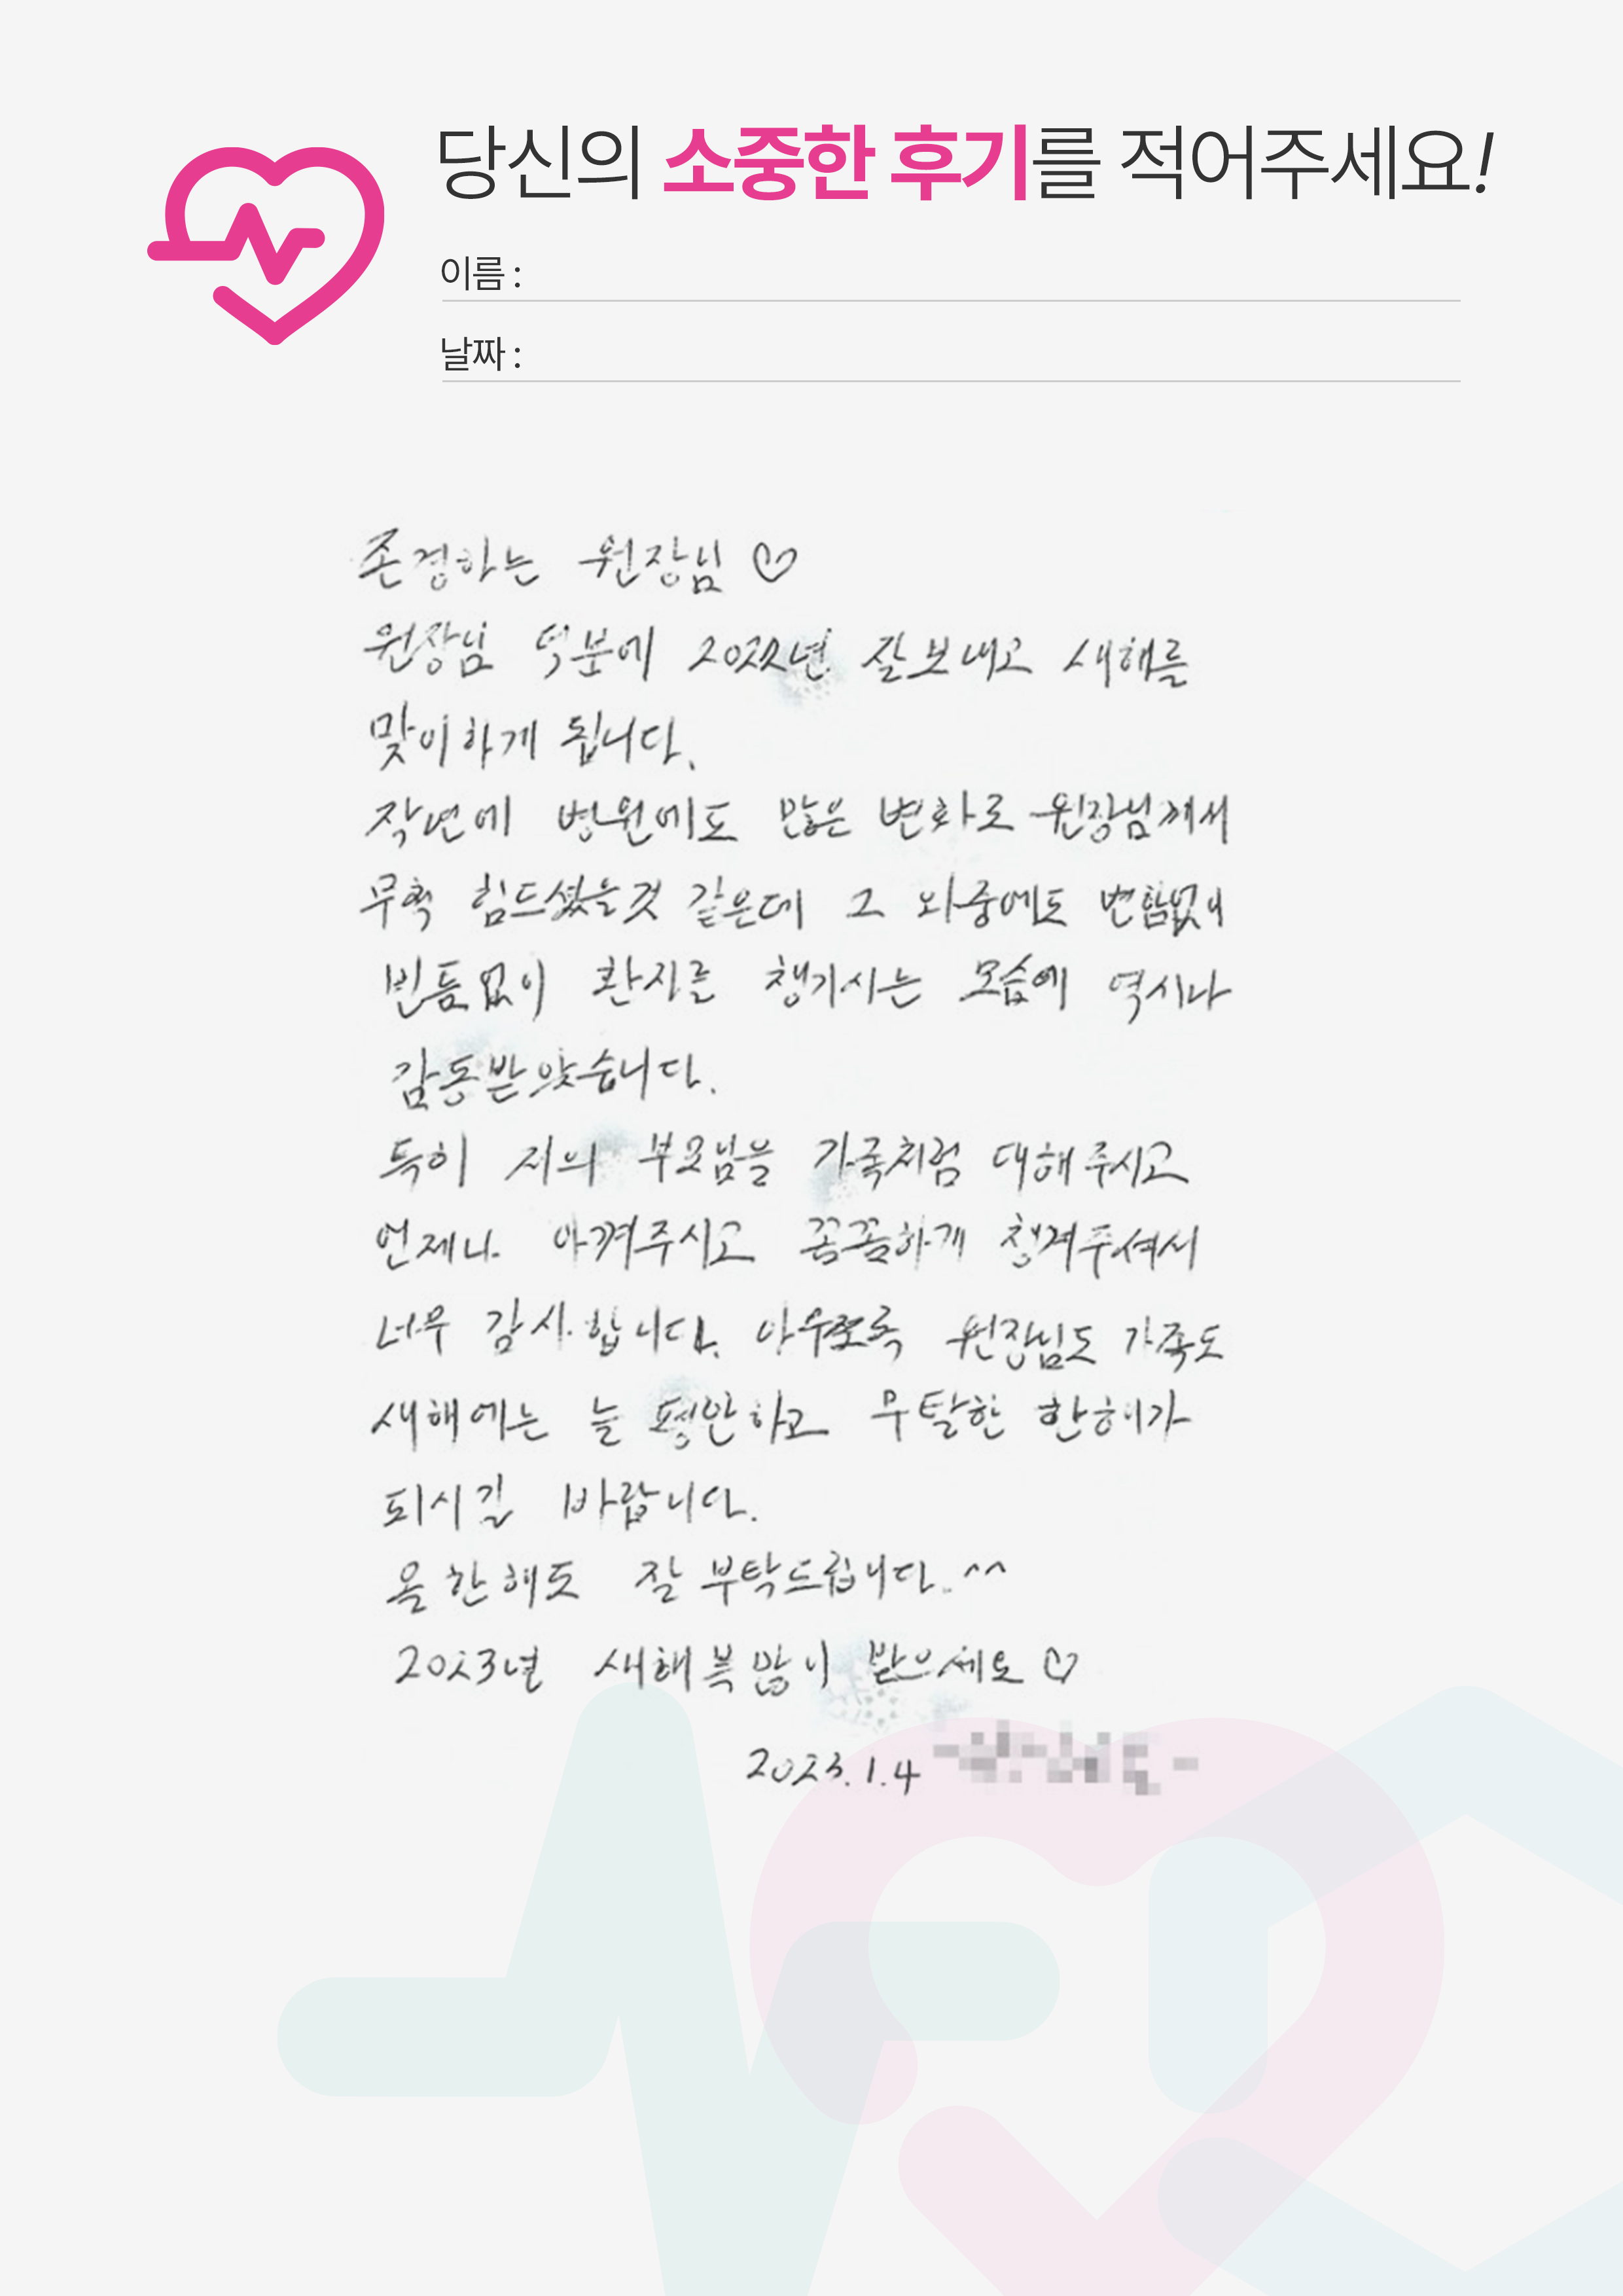 당신의 소중한 후기를 적어주세요!
이름 :
날짜 :
존경하는 원장님 ♡
원장님 덕분에 2022년 잘 보내고 새해를
맞이하게 됩니다.
작년에 병원에도 많은 변화로 원장님께서
무척 힘드셨을것 같은데 그 와중에도 변함없이
빈틈없이 환자를 챙기시는 모습에 역시나
감동받았습니다.
특히 저의 부모님을 가족처럼 대해주시고
언제나 아껴주시고 꼼꼼하게 챙겨주셔서
너무 감사합니다. 아무쪼록 원장님도 가족도
새해에는 늘 평안하고 무탈한 한해가
되시길 바랍니다.
올 한해도 잘 부탁드립니다.^^
2023년 새해 복 많이 받으세요 ♡
2023.1.4